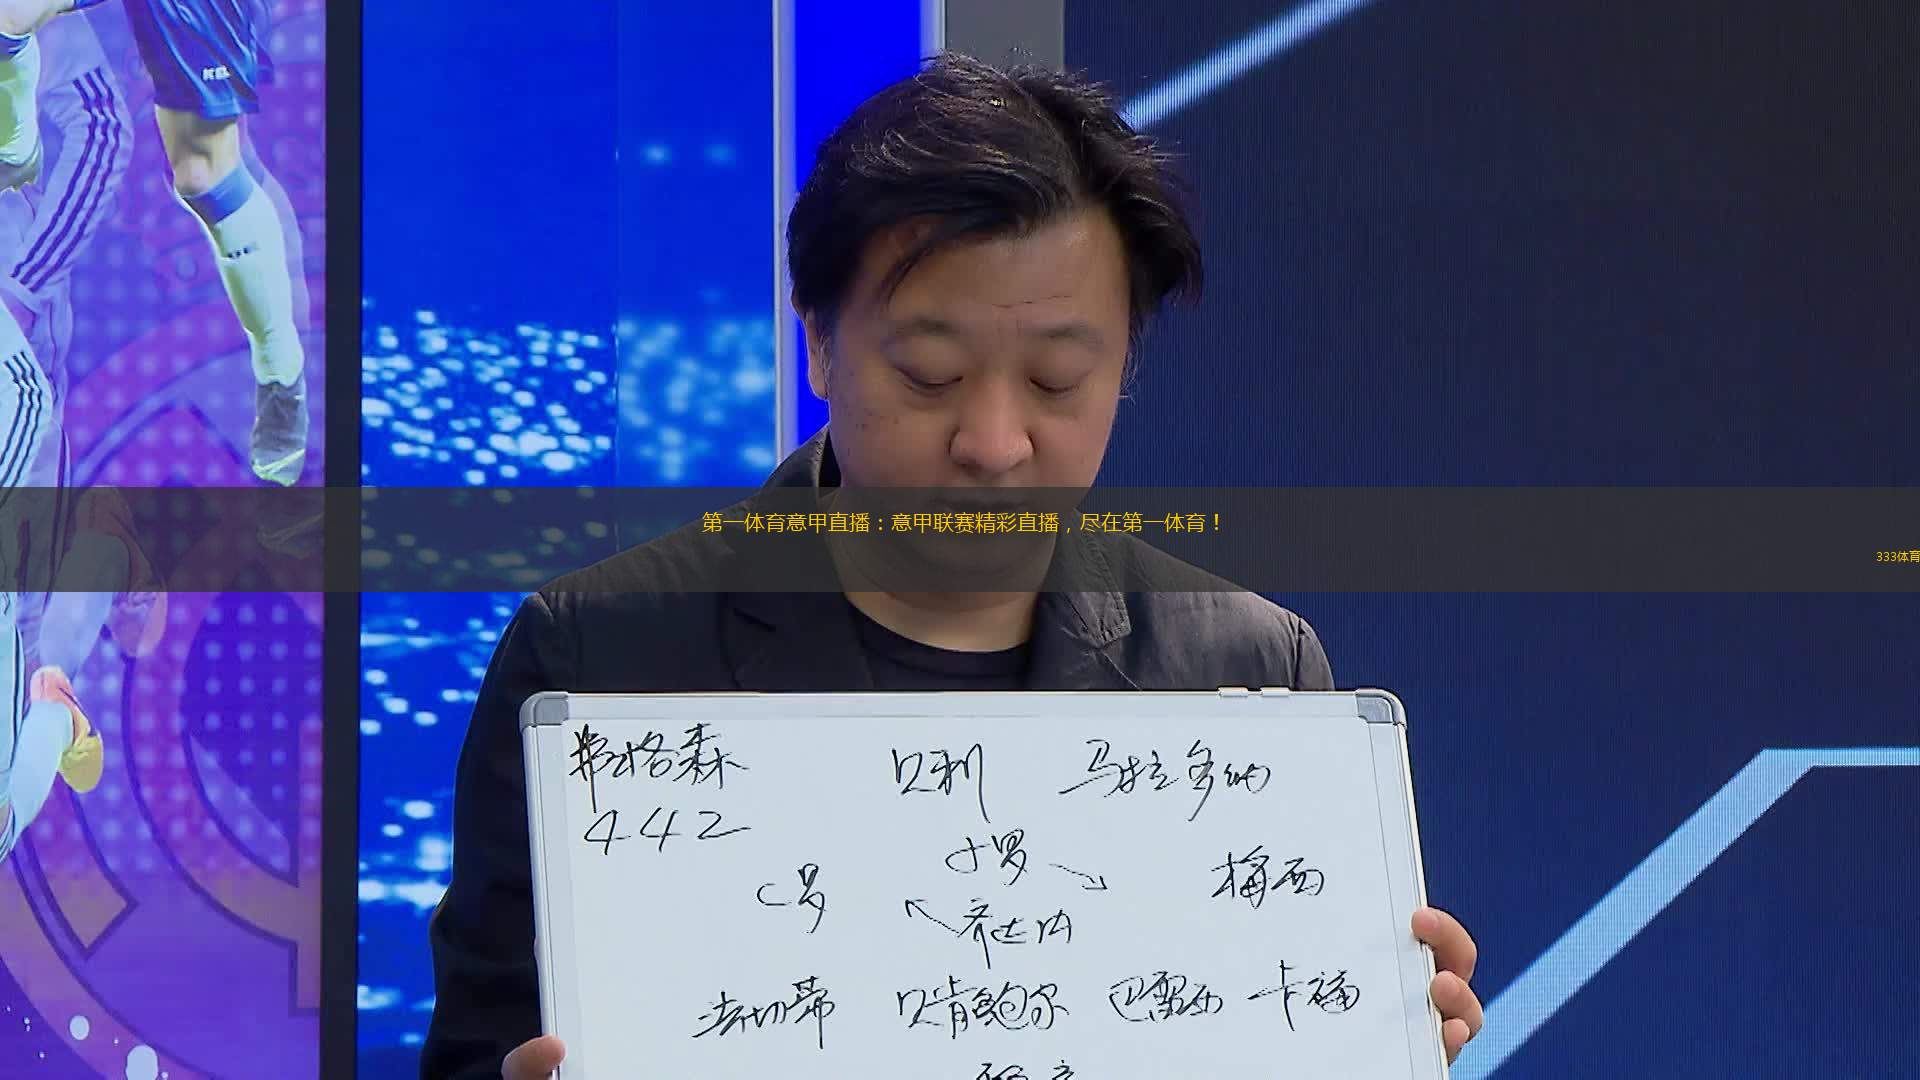 第一体育意甲直播：意甲联赛精彩直播，尽在第一体育！
333体育
弗格森 贝利 马拉多纳
442
小罗
C罗 梅西
齐达内
法切蒂 贝肯鲍尔 巴雷西 卡福